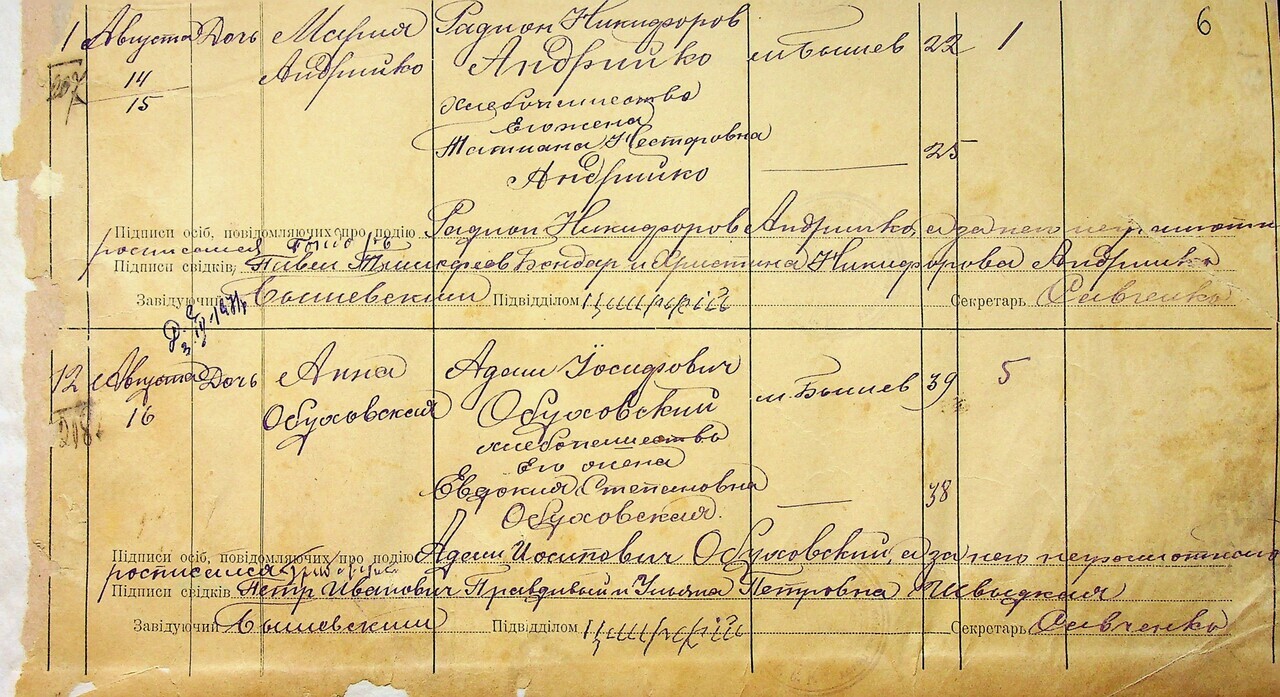 6
1 Августа Дочь Мария Радион Никифоров м Бышев 22 1
207 14 Андрийко Андрийко
15 хлебопашество
Его жена
Татиана Несторовна 25
Андрийко
Підписи осіб, повідомляючих про подію Радион Никифоров Андрийко, а за него неграмотн
росписался
Підписи свідків, Павел Тимофеев Бондар и Христина Никифорова Андрийко
Завідуючий Бышевским Підвідділом Секретарь Савченко
12 Августа Дочь Анна Адам Іосифович м. Бышев 39 5
208 16 Обуховская Обуховский
хлебопашество
Его жена
Евдокия Степановна 38
Обуховская.
Підписи осіб, повідомляючих про подію Адам Иосипович Обуховский, а за него неграмотного
росписался
Підписи свідків Петр Иванович Правдивый и Ульяна Петровна Швыдкая
Завідуючий Бышевским Підвідділом Секретарь Савченко